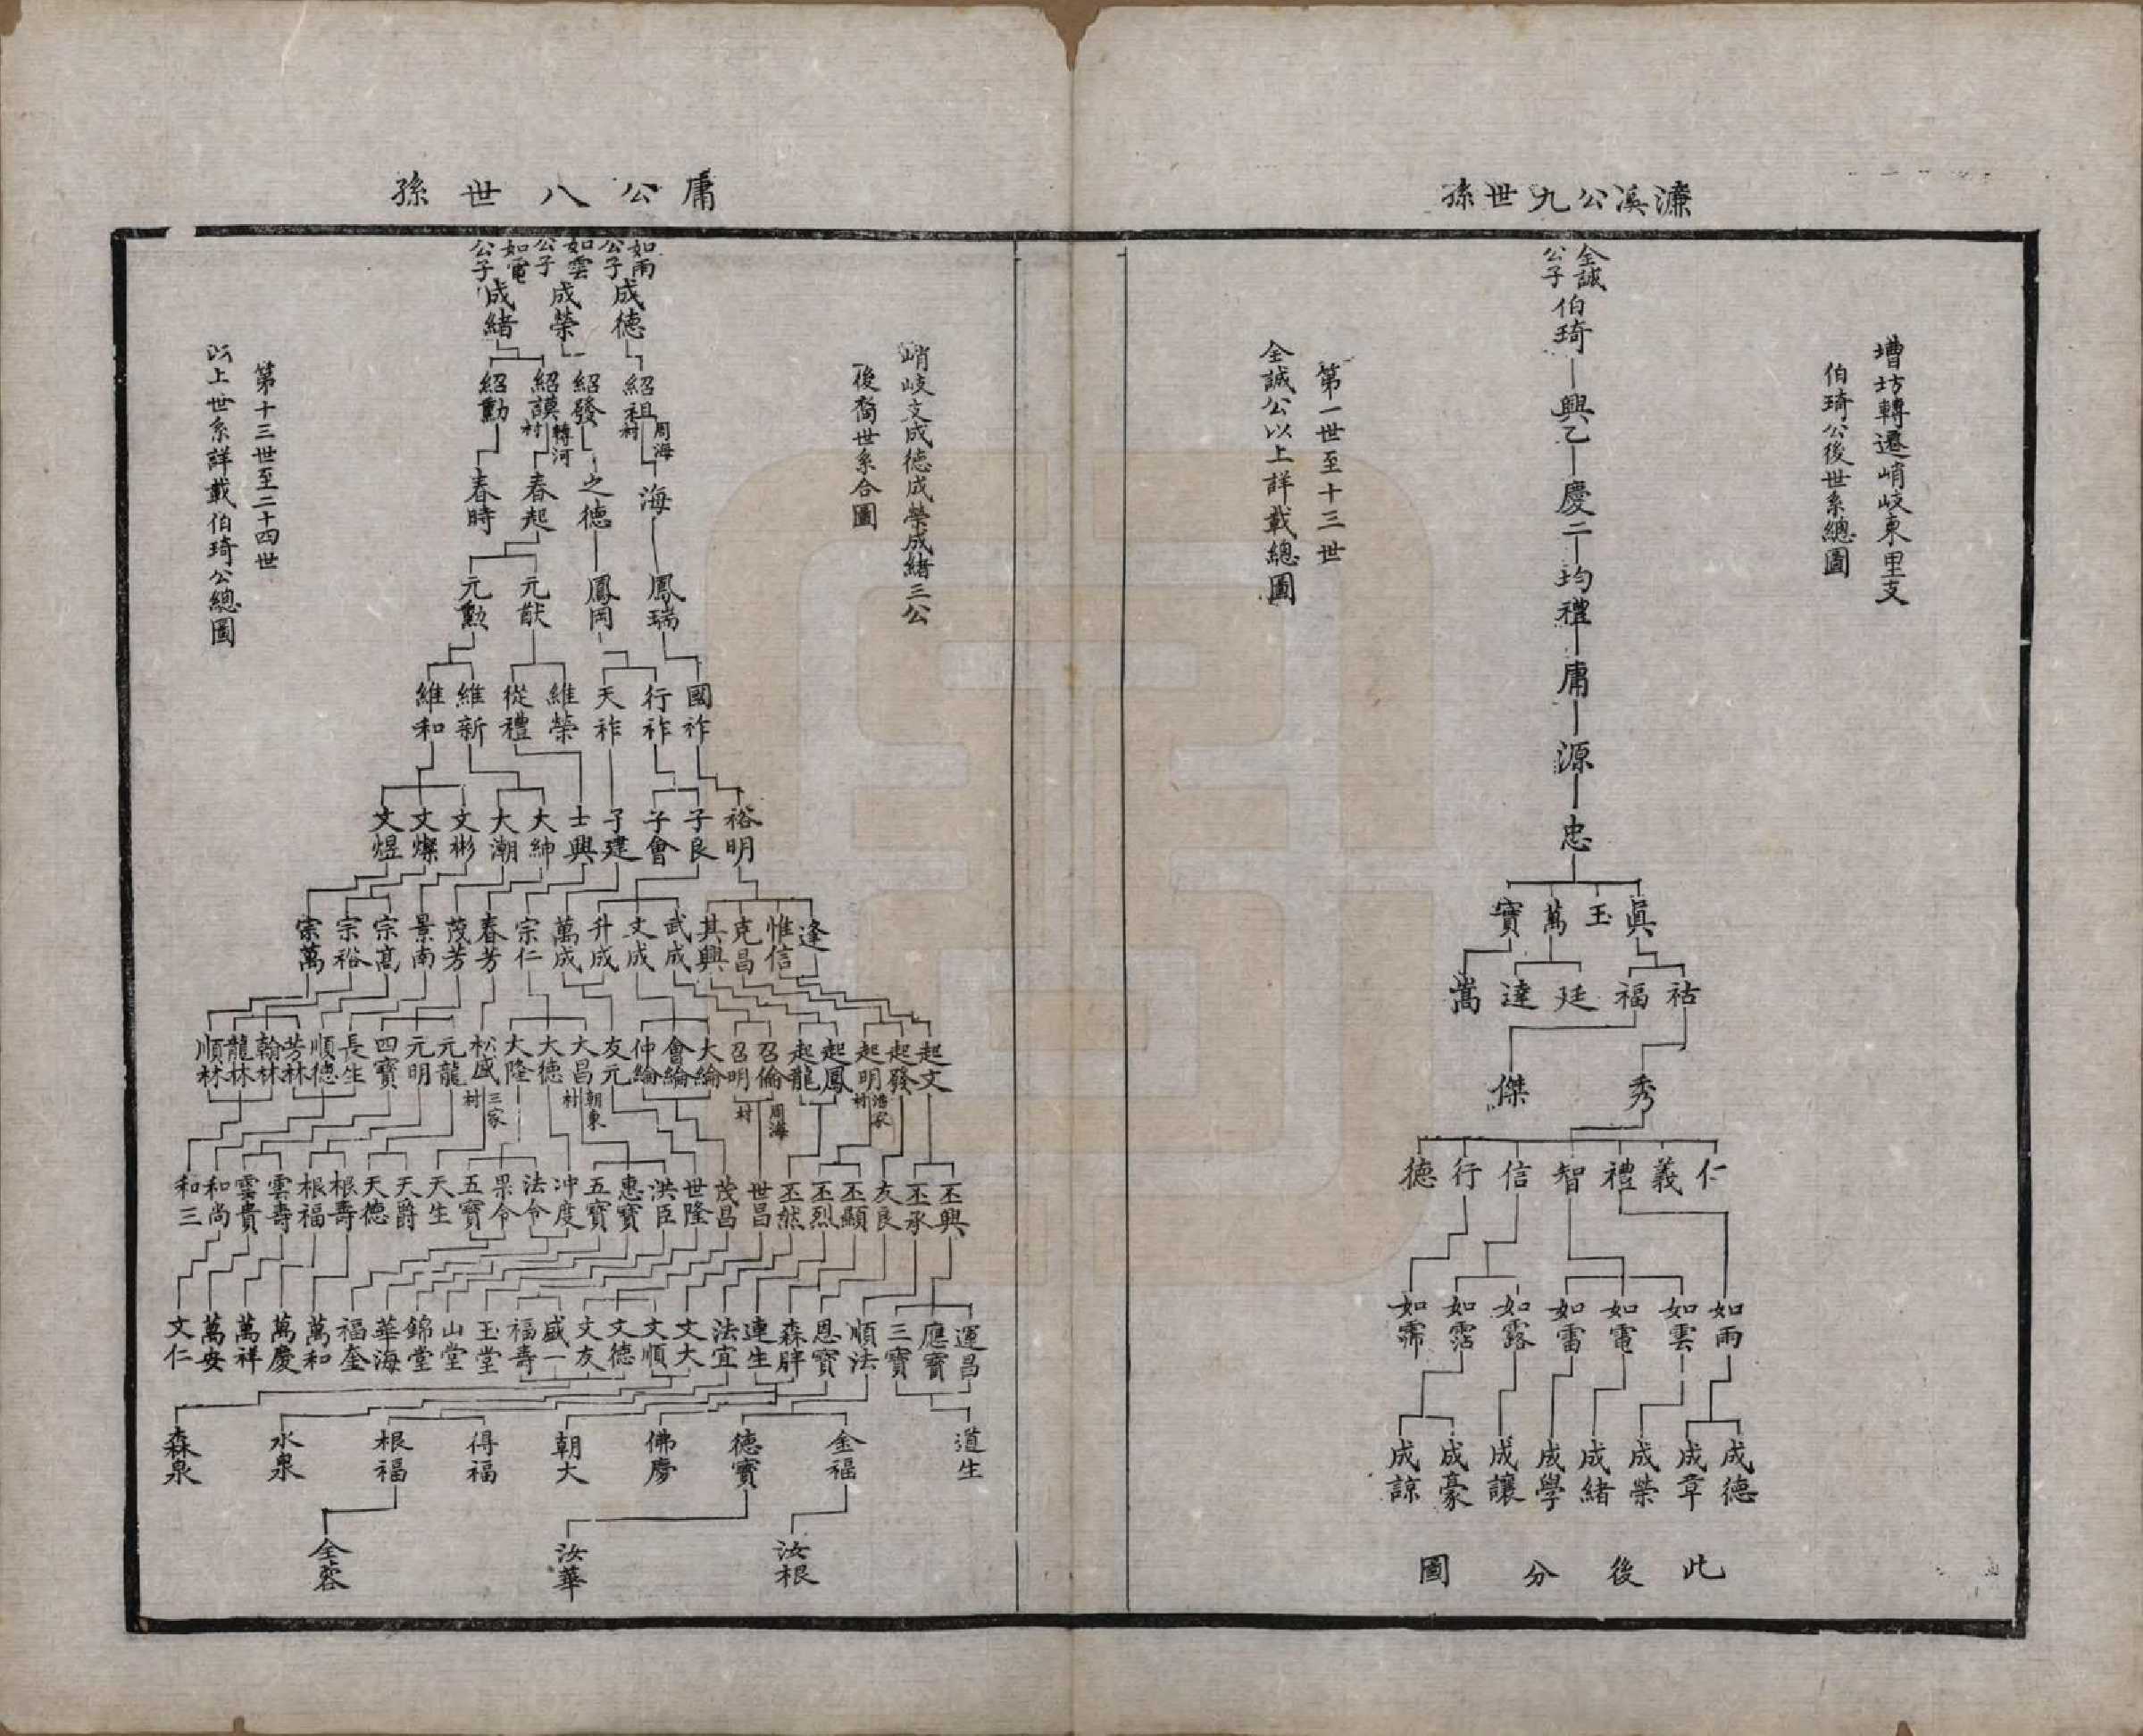 濂溪公九世孫
漕坊轉遷峭岐東里支
伯琦公後世系總圖
全誠公子
伯琦
興乙
慶二
均禮
庸
源
忠
眞 玉 萬 寶
祜 福 廷 達 嵩
秀 傑
仁 義 禮 智 信 行 德
如雨 如雲 如電 如雷 如露 如霑 如霈
成德 成章 成榮 成緒 成學 成讓 成豪 成諒
此後分圖
第一世至十三世
全誠公以上詳載總圖
庸公八世孫
峭岐支成德成榮成緒三公
後裔世系合圖
如雨公子 如雲公子 如電公子
成德 成榮 成緒
紹祖 紹發 紹謨 紹勳
周海村 轉河村
海 之德 春起 春時
鳳瑞 鳳岡 元猷 元勳
國祚 行祚 天祚 維榮 從禮 維新 維和
裕明 子良 子會 子建 士興 大紳 大潮 文彬 文燦 文煜
逢 惟信 克昌 其興 武成 文成 升成 萬成 宗仁 春芳 茂芳 景南 宗高 宗裕 宗萬
起文 起發 起明 起鳳 起龍 召倫 召明 大綸 會綸 仲綸 友元 大昌 大德 大隆 松盛 元龍 元明 四寶 長生 順德 芳林 翰林 龍林 順林
周海村 朝東村 三家村
丕興 丕承 友良 丕顯 丕烈 丕然 世昌 茂昌 世隆 洪臣 惠寶 五寶 冲度 法令 果令 五寶 天生 天爵 天德 根壽 根福 雲壽 雲貴 和尚 和三
運昌 應寶 三寶 順法 恩寶 森胖 連生 法宜 文大 文順 文德 文友 盛一 福壽 玉堂 山堂 錦堂 華海 福奎 萬和 萬慶 萬祥 萬安 文仁
道生 金福 德寶 佛慶 朝大 得福 根福 水泉 森泉
汝根 汝華 全蓉
第十三世至二十四世
以上世系詳載伯琦公總圖